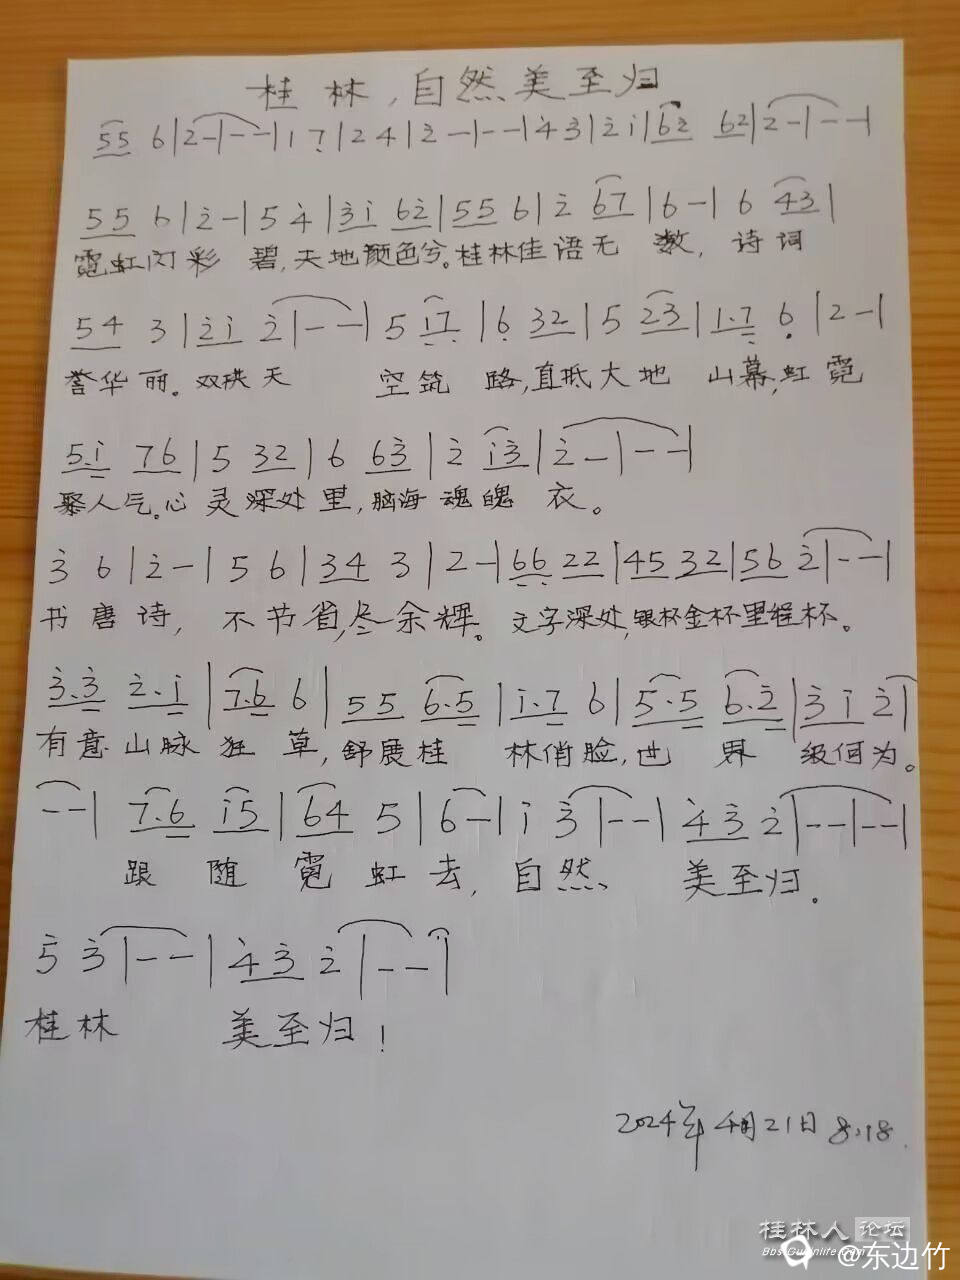 桂林,自然美至归
55 6|2-|--|1 7|2 4|2̇ -|--|4̇ 3̇|2̇ i|62̇ 62̇|2̇ -|--|
55 6|2̇ -|5 4̇|3̇i 62̇|55 6|2̇ 67|6-|6 4̇3̇|
霓虹闪彩碧,天地颜色兮。桂林佳语无数,诗词
54 3|2̇i 2̇|--|5 i7|6 32|5 23|1.7 6|2-|
誉华丽。双拱天 空筑路,直抵大地山幕,虹霓
5.i 76|5 32|6 63̇|2̇ i3̇|2̇ -|--|
聚人气。心灵深处里,脑海魂魄衣。
3̇ 6|2̇ -|5 6|34 3|2-|66 22|45 32|56 2̇|--|
书唐诗,不节省,尽余辉。文字深处,银杯金杯里程杯。
3̇.3̇ 2̇.i|7.6 6|55 6.5|i.7 6|5.5 6.2̇|3̇ i 2̇|
有意山脉狂草,舒展桂林俏脸,世界级何为。
--|7.6 i5|64 5|6-|i 3̇|--|4̇3̇ 2̇|--|--|
跟随霓虹去,自然美至归。
5̇ 3̇|--|4̇3̇ 2̇|--|
桂林 美至归!
2024年4月21日 8:18
桂林人论坛
@东边竹